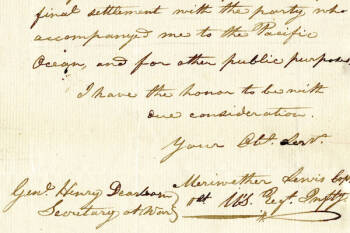 final settlement with the party who
accompanyed me to the Pacific
Ocean, and for other public purposes
I have the honor to be with
due consideration.
Your Obt. Servt.
Meriwether Lewis Capt.
1st U.S. Regt. Infty.
Genl. Henry Dearborn
Secretary at War